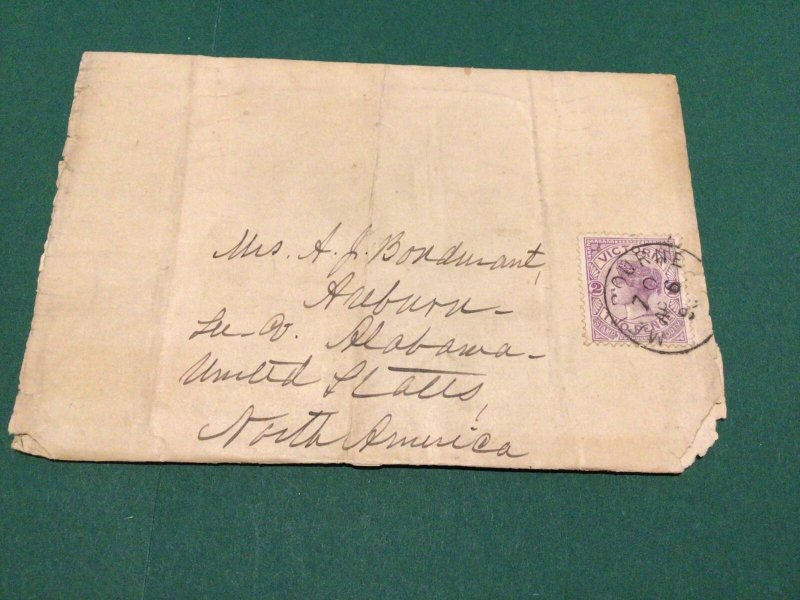 Mrs. A. J. Bondurant,
Auburn-
Lee Co. Alabama-
United States,
North America
VICTORIA
2
MELBOURNE